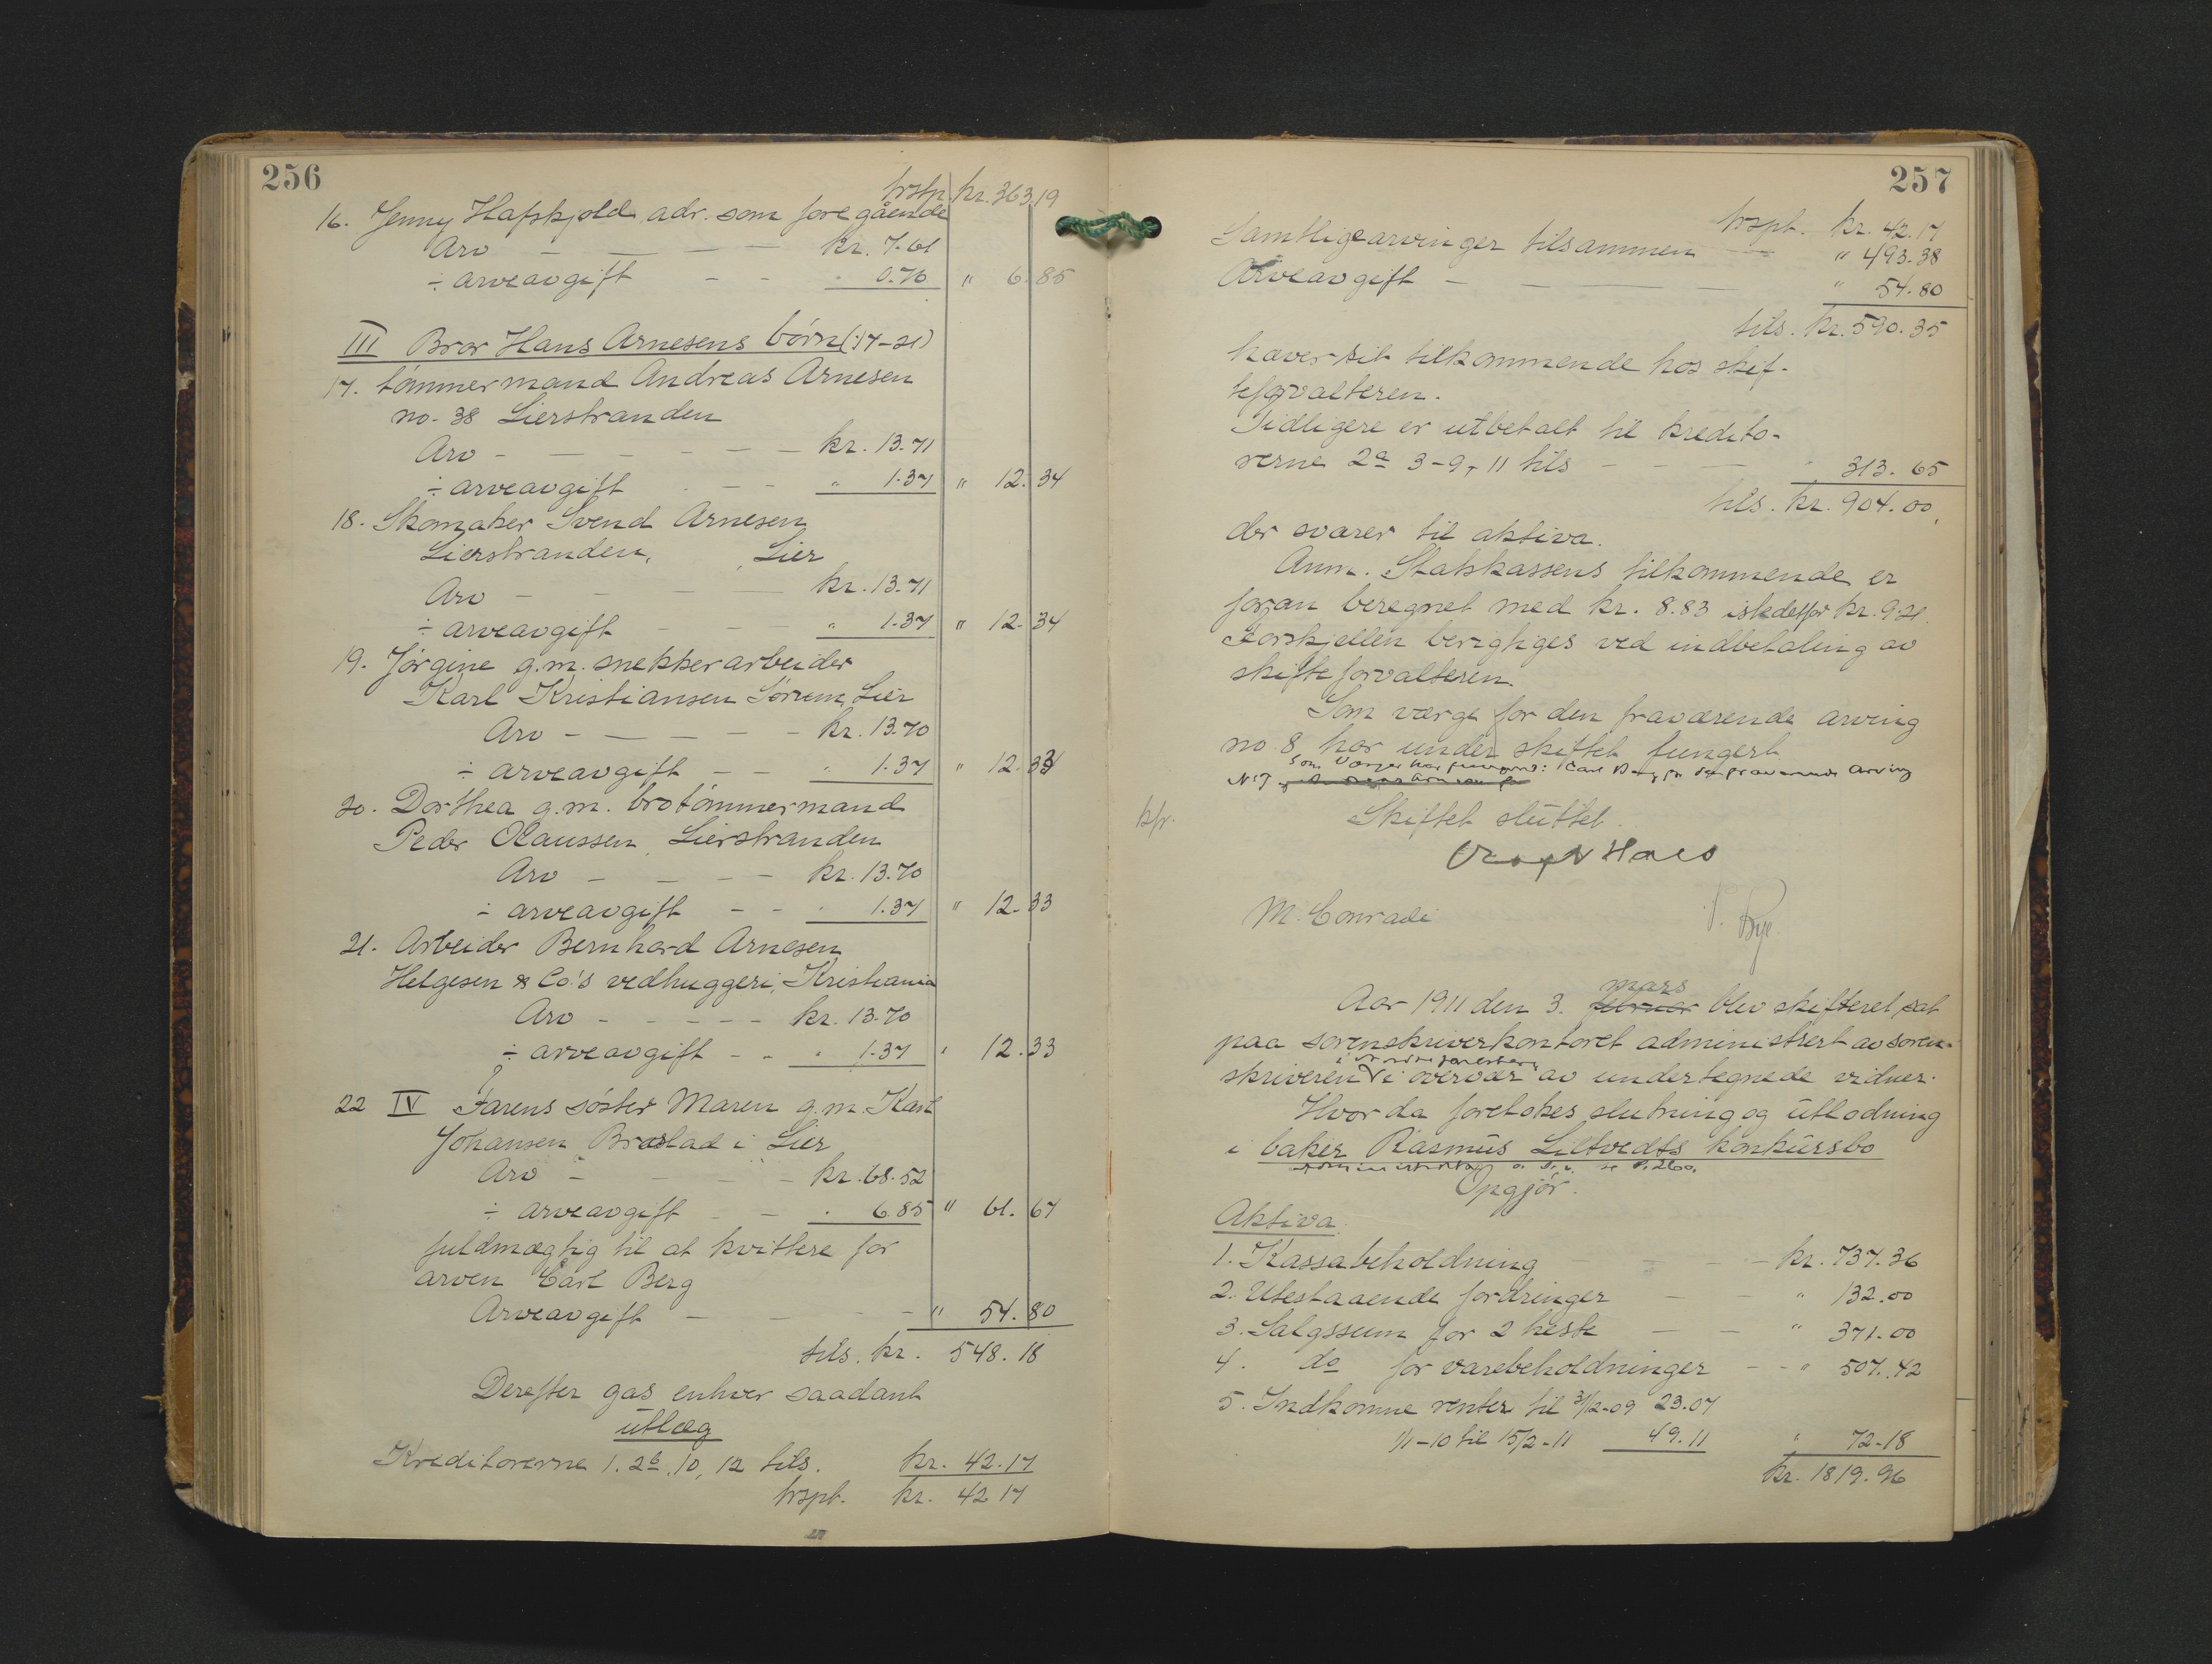 256
trsp. kr. 363.19
16. Jenny Hafskjold adr. som foregående
Arv — — — kr. 7.61
÷ arveavgift - - " 0.76 " 6.85
III Bror Hans Arnesens børn (17-21)
17. tømmermand Andreas Arnesen
no. 38 Lierstranden
Arv - - - - - kr. 13.71
÷ arveavgift - - " 1.37 " 12.34
18. Skomaker Svend Arnesen
Lierstranden, Lier
Arv - - - - kr. 13.71
÷ arveavgift - - - " 1.37 " 12.34
19. Jørgine g.m. snekkerarbeider
Karl Kristiansen Lier
Arv - - - - - kr. 13.70
÷ arveavgift - - " 1.37 " 12.33
20. Dorthea g.m. brotømmermand
Peder Olaussen, Lierstranden
Arv - - - - kr. 13.70
÷ arveavgift - - " 1.37 " 12.33
21. Arbeider Bernhard Arnesen
Helgesen & Co's vedhuggeri, Kristiania
Arv - - - - - kr. 13.70
÷ arveavgift - - " 1.37 " 12.33
22 IV Farens søster Maren g.m. Karl
Johansen Brastad i Lier
Arv - - - - kr. 68.52
÷ arveavgift - - " 6.85 " 61.67
fuldmægtig til at kvittere for
arven Carl Berg
Arveavgift - - - " 54.80
tils. kr. 548.18
Derefter gas enhver saadant
utlæg
Kreditorerne 1. 2b, 10, 12 tils. kr. 42.17
trspt. kr. 42 17
257
trspt. kr. 42.17
Samtlige arvinger tilsammen — " 493.38
Arveavgift - - - " 54.80
tils. kr. 590.35
hæver sit tilkommende hos skif-
teforvalteren.
Tidligere er utbetalt til kredito-
rerne 2a 3-9, 11 tils - - - " 313.65
tils. kr. 904.00,
der svarer til aktiva.
Anm. Statskassens tilkommende er
foran beregnet med kr. 8.83 istedetfor kr. 9.21.
Forskjellen berigtiges ved indbetaling av
skifteforvalteren.
Som værge for den fraværende arving
no. 8 har under skiftet fungert
Som Værger har fungeret: Carl Berg for den fraværende Arving
No 7
Skiftet sluttet.
M. Conradi
Aar 1911 den 3. februar mars blev skifteret sat
paa sorenskriverkontoret administrert av soren-
skriveren i overvær av undertegnede vidner.
Hvor da foretokes slutning og utlodning
i baker Rasmus Liltvedts konkursbo
se P. 260.
Opgjør.
Aktiva.
1. Kassabeholdning - - - - kr. 737.36
2. Utestaaende fordringer - - " 132.00
3. Salgssum for 2 heste - - " 371.00
4. do for varebeholdninger - - " 507.42
5. Indkomne renter til 31/12-09 23.07
1/1-10 til 15/2-11 49.11 " 72.18
kr. 1819.96